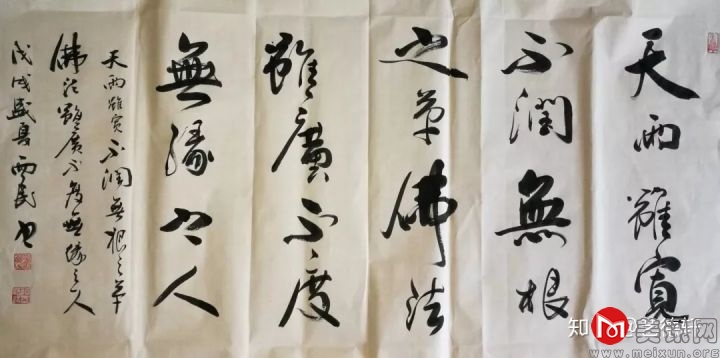 天雨雖寬
不潤無根
之草佛法
雖廣不度
無緣之人
天雨雖寬不潤無根之草
佛法雖廣不度無緣之人
戊戌盛夏西民书
美讯网
www.meixun.org